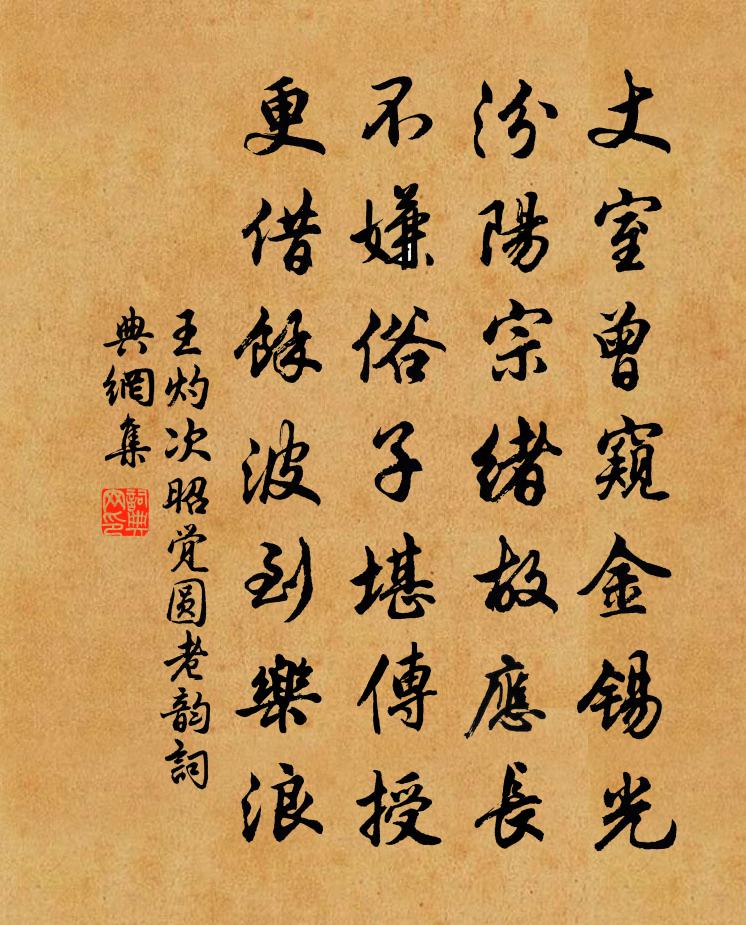 丈室曾窺金錫光
汾陽宗緒故應長
不嫌俗子堪傳授
更借餘波到樂浪
王灼次昭觉圆老韵詞
典網集
詞典
网印